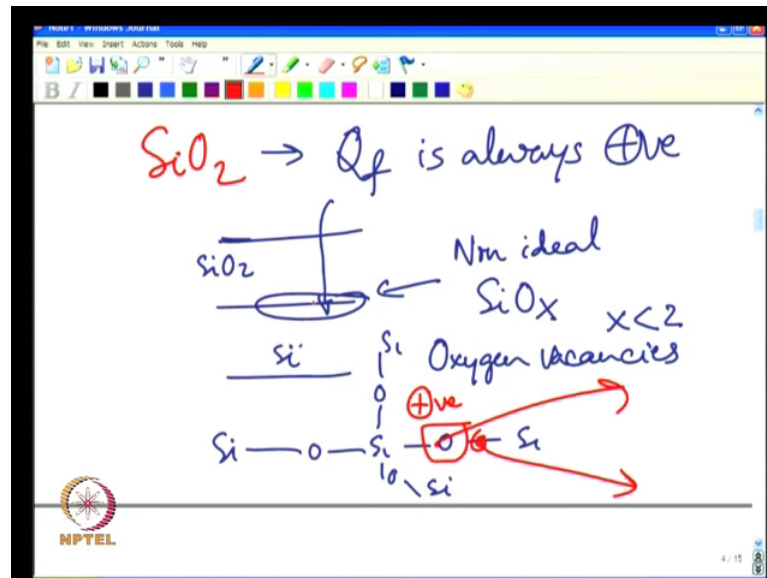 Note1 - Windows Journal
File Edit View Insert Actions Tools Help
B I
SiO2 → Qf is always ⊕ve
SiO2
Non ideal
SiOx x<2
Si
Oxygen Vacancies
Si
O
⊕ve
Si — O — Si — O — Si
O \ Si
NPTEL
4 / 15